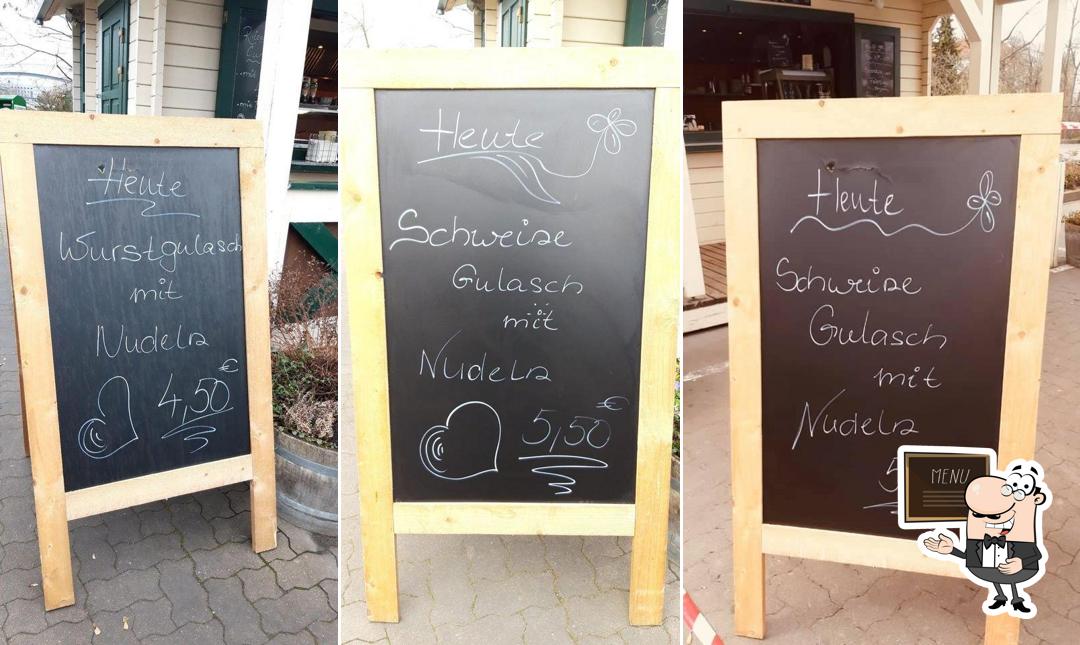 Heute
Wurstgulasch
mit
Nudeln
4,50 €
Heute
Schweine
Gulasch
mit
Nudeln
5,50 €
Heute
Schweine
Gulasch
mit
Nudeln
5
MENU